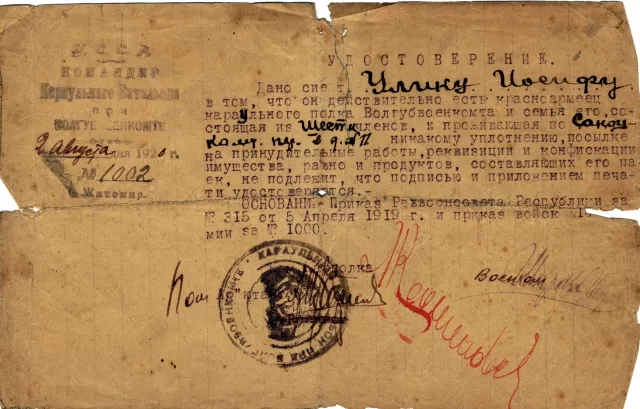 У.С.С.Р.
КОМАНДИР
Караульного Батальона
при
ВОЛГУБВОЕНКОМТЕ
2 августа дня 1920 г.
№ 1002
г. Житомир.
УДОСТОВЕРЕНИЕ.
Дано сие т. Улику Иосифу
в том, что он действительно есть красноармеец
караульного полка Волгубвоенкомта и семья его, со-
стоящая из шест членов, и проживающая по
пер. д. № никакому уплотнению, посылке
на принудительные работы, реквизиции и конфискации
имущества, равно и продуктов, составляющих его па-
ек, не подлежит что подписью и приложением печа-
ти удостоверяется.-
ОСНОВАНИ. Приказ Реввоенсовета Республики за
№ 315 от 5 Апреля 1919 г. и приказ войск 1
мии за № 1000.
полка
Военком
Пом. Ад"ютанта
КАРАУЛЬН ПРИ ВОЕНКОМТЕ